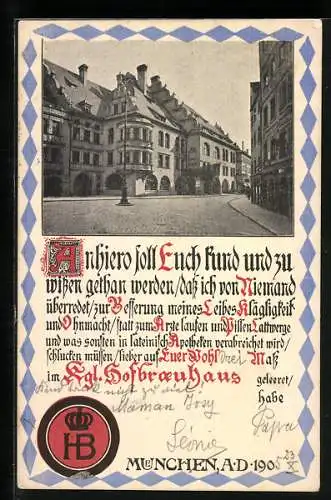 Anhiero soll Euch kund und zu
wißen gethan werden/daß ich von Niemand
überredet/zur Besserung meines Leibes Klägligkeit
und Ohnmacht/statt zum Arzte laufen und Pillen Lattwerge
und was sonsten in lateinisch Apotheken verabreicht wird/
schlucken müssen/lieber auf Euer Wohl drei Maß
im Kgl. Hofbrœuhaus geleeret/
habe
Maman Josy
Papa
Léonie
HB
MÜNCHEN, A·D·190
23
X